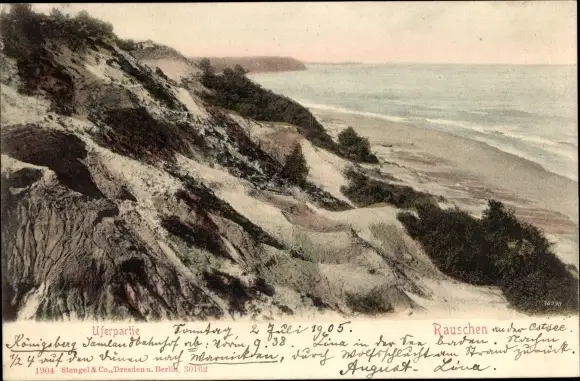 Uferpartie
Rauschen an der Ostsee.
Sonntag 2 Juli 1905.
Königsberg Samlandbahnhof ab: Vorm. 9.38. Lina in der See baden. Nachm
1/2 4 auf den Dünen nach Warnicken, durch Wolfsschlucht am Strand zurück.
August. Lina.
1904 Stengel & Co., Dresden u. Berlin 30162